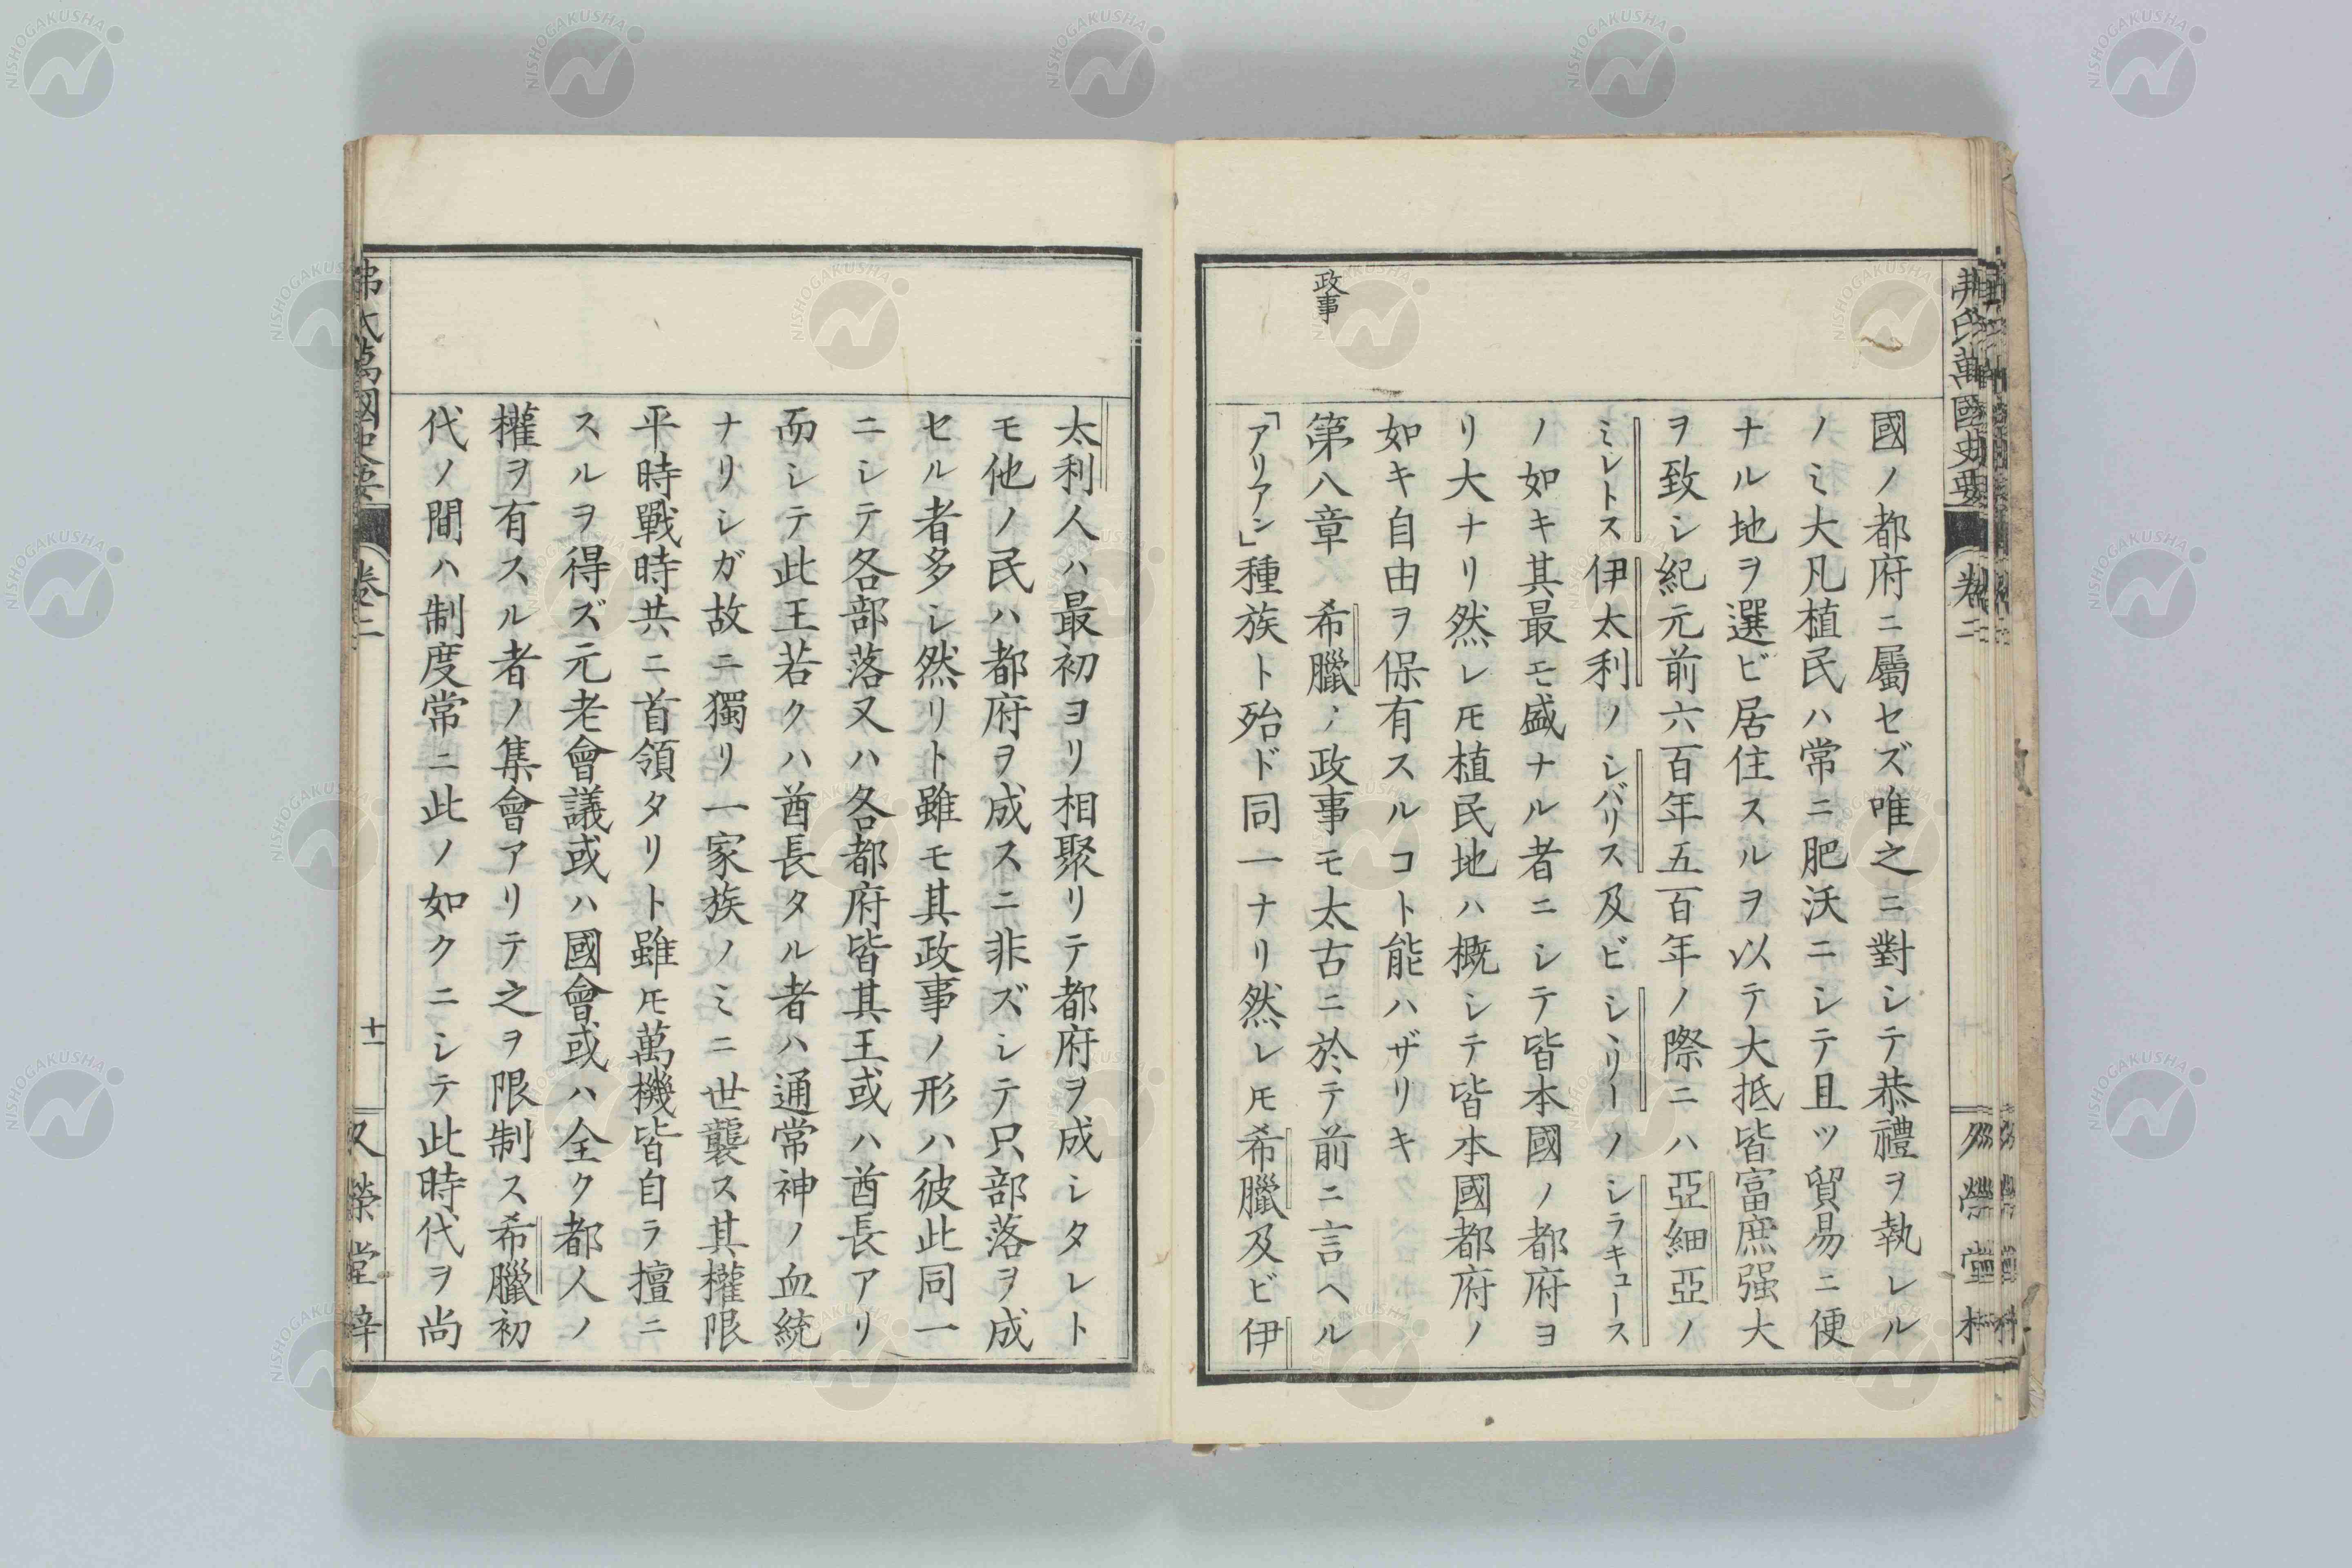 政事
國ノ都府ニ屬セズ唯之ニ對シテ恭禮ヲ執レル
ノミ大凡植民ハ常ニ肥沃ニシテ且ツ貿易ニ便
ナル地ヲ選ビ居住スルヲ以テ大抵皆富庶强大
ヲ致シ紀元前六百年五百年ノ際ニハ亞細亞ノ
ミレトス伊太利ノシバリス及ビシヽリーノシラキュース
ノ如キ其最モ盛ナル者ニシテ皆本國ノ都府ヨ
リ大ナリ然レ𪜈植民地ハ概シテ皆本國都府ノ
如キ自由ヲ保有スルコト能ハザリキ
第八章 希臘ノ政事モ太古ニ於テ前ニ言ヘル
「アリアン」種族ト殆ド同一ナリ然レ𪜈希臘及ビ伊
太利人ハ最初ヨリ相聚リテ都府ヲ成シタレト
モ他ノ民ハ都府ヲ成スニ非ズシテ只部落ヲ成
セル者多シ然リト雖モ其政事ノ形ハ彼此同一
ニシテ各部落又ハ各都府皆其王或ハ酋長アリ
而シテ此王若クハ酋長タル者ハ通常神ノ血統
ナリシガ故ニ獨リ一家族ノミニ世襲ス其權限
平時戰時共ニ首領タリト雖𪜈萬機皆自ラ擅ニ
スルヲ得ズ元老會議或ハ國會或ハ全ク都人ノ
權ヲ有スル者ノ集會アリテ之ヲ限制ス希臘初
代ノ間ハ制度常ニ此ノ如クニシテ此時代ヲ尚
弗氏萬國史要
卷二
十一
又榮堂梓
NISHOGAKUSHA